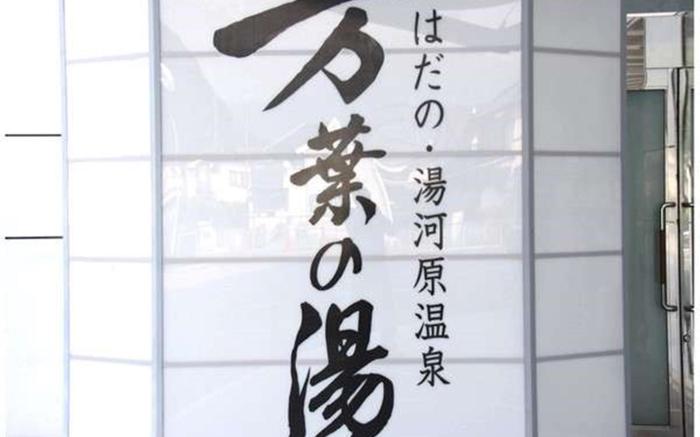 はだの・湯河原温泉
万葉の湯